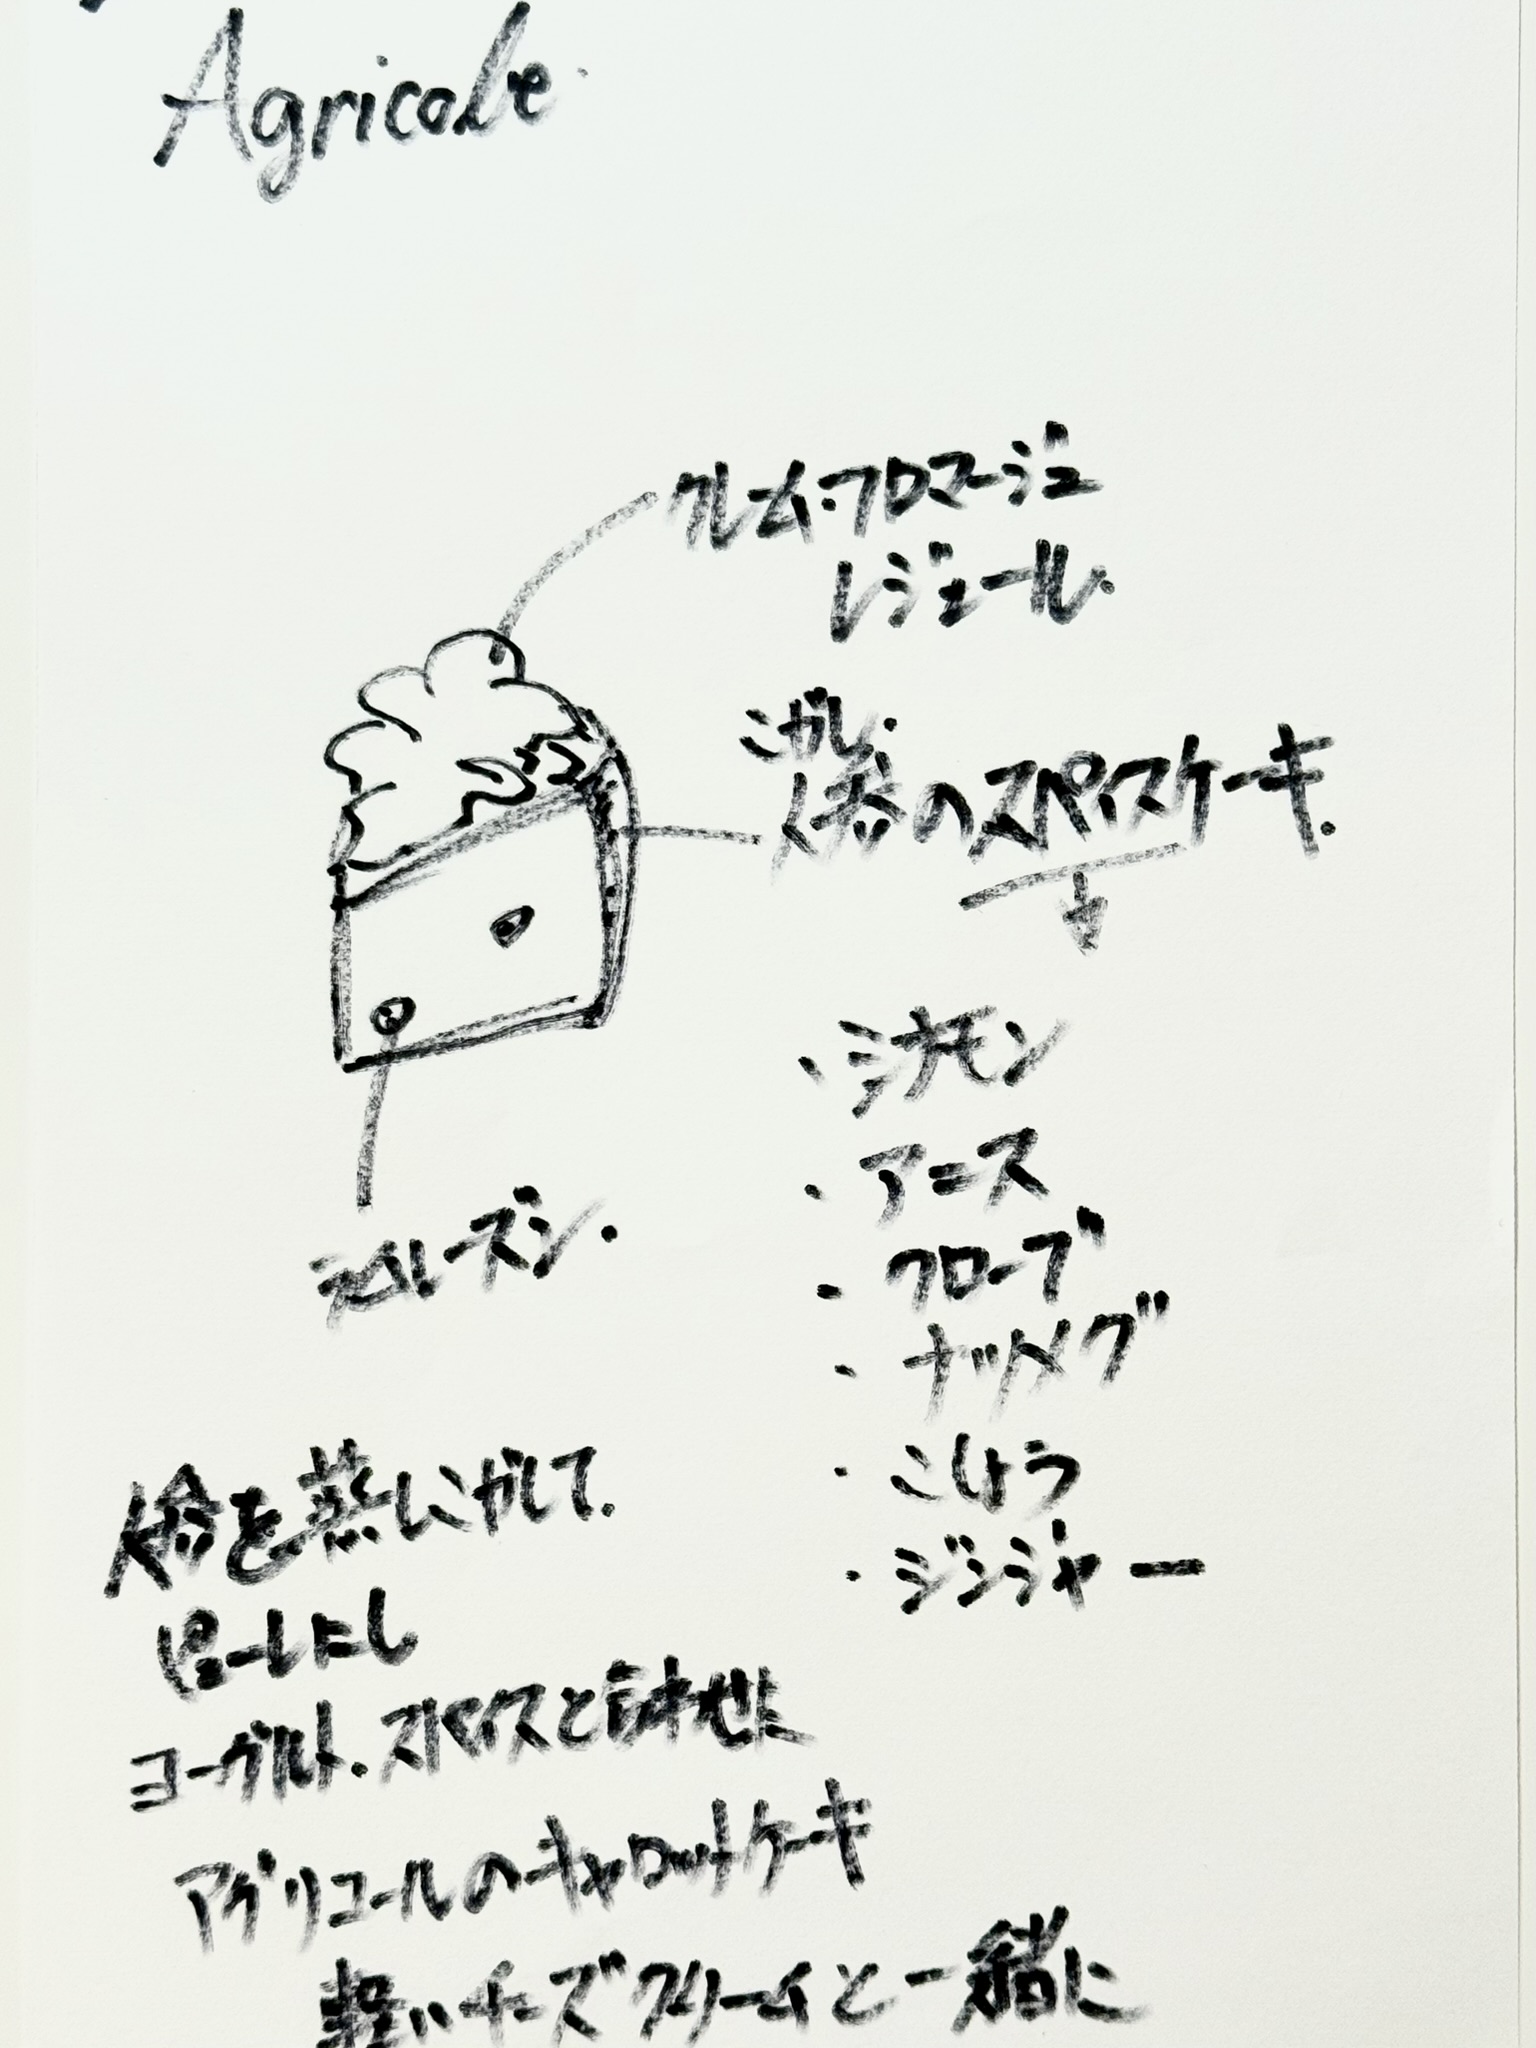 Agricole.
クレーム・フロマージュ
レジェール.
こがし.
人参のスパイスケーキ.
・シナモン
・アニス
・クローブ
・ナツメグ
・こしょう
・ジンジャー
レーズン.
人参を蒸しこがして.
ピューレにし
ヨーグルト.スパイスと合わせた
アグリコールのキャロットケーキ
軽いチーズクリームと一緒に